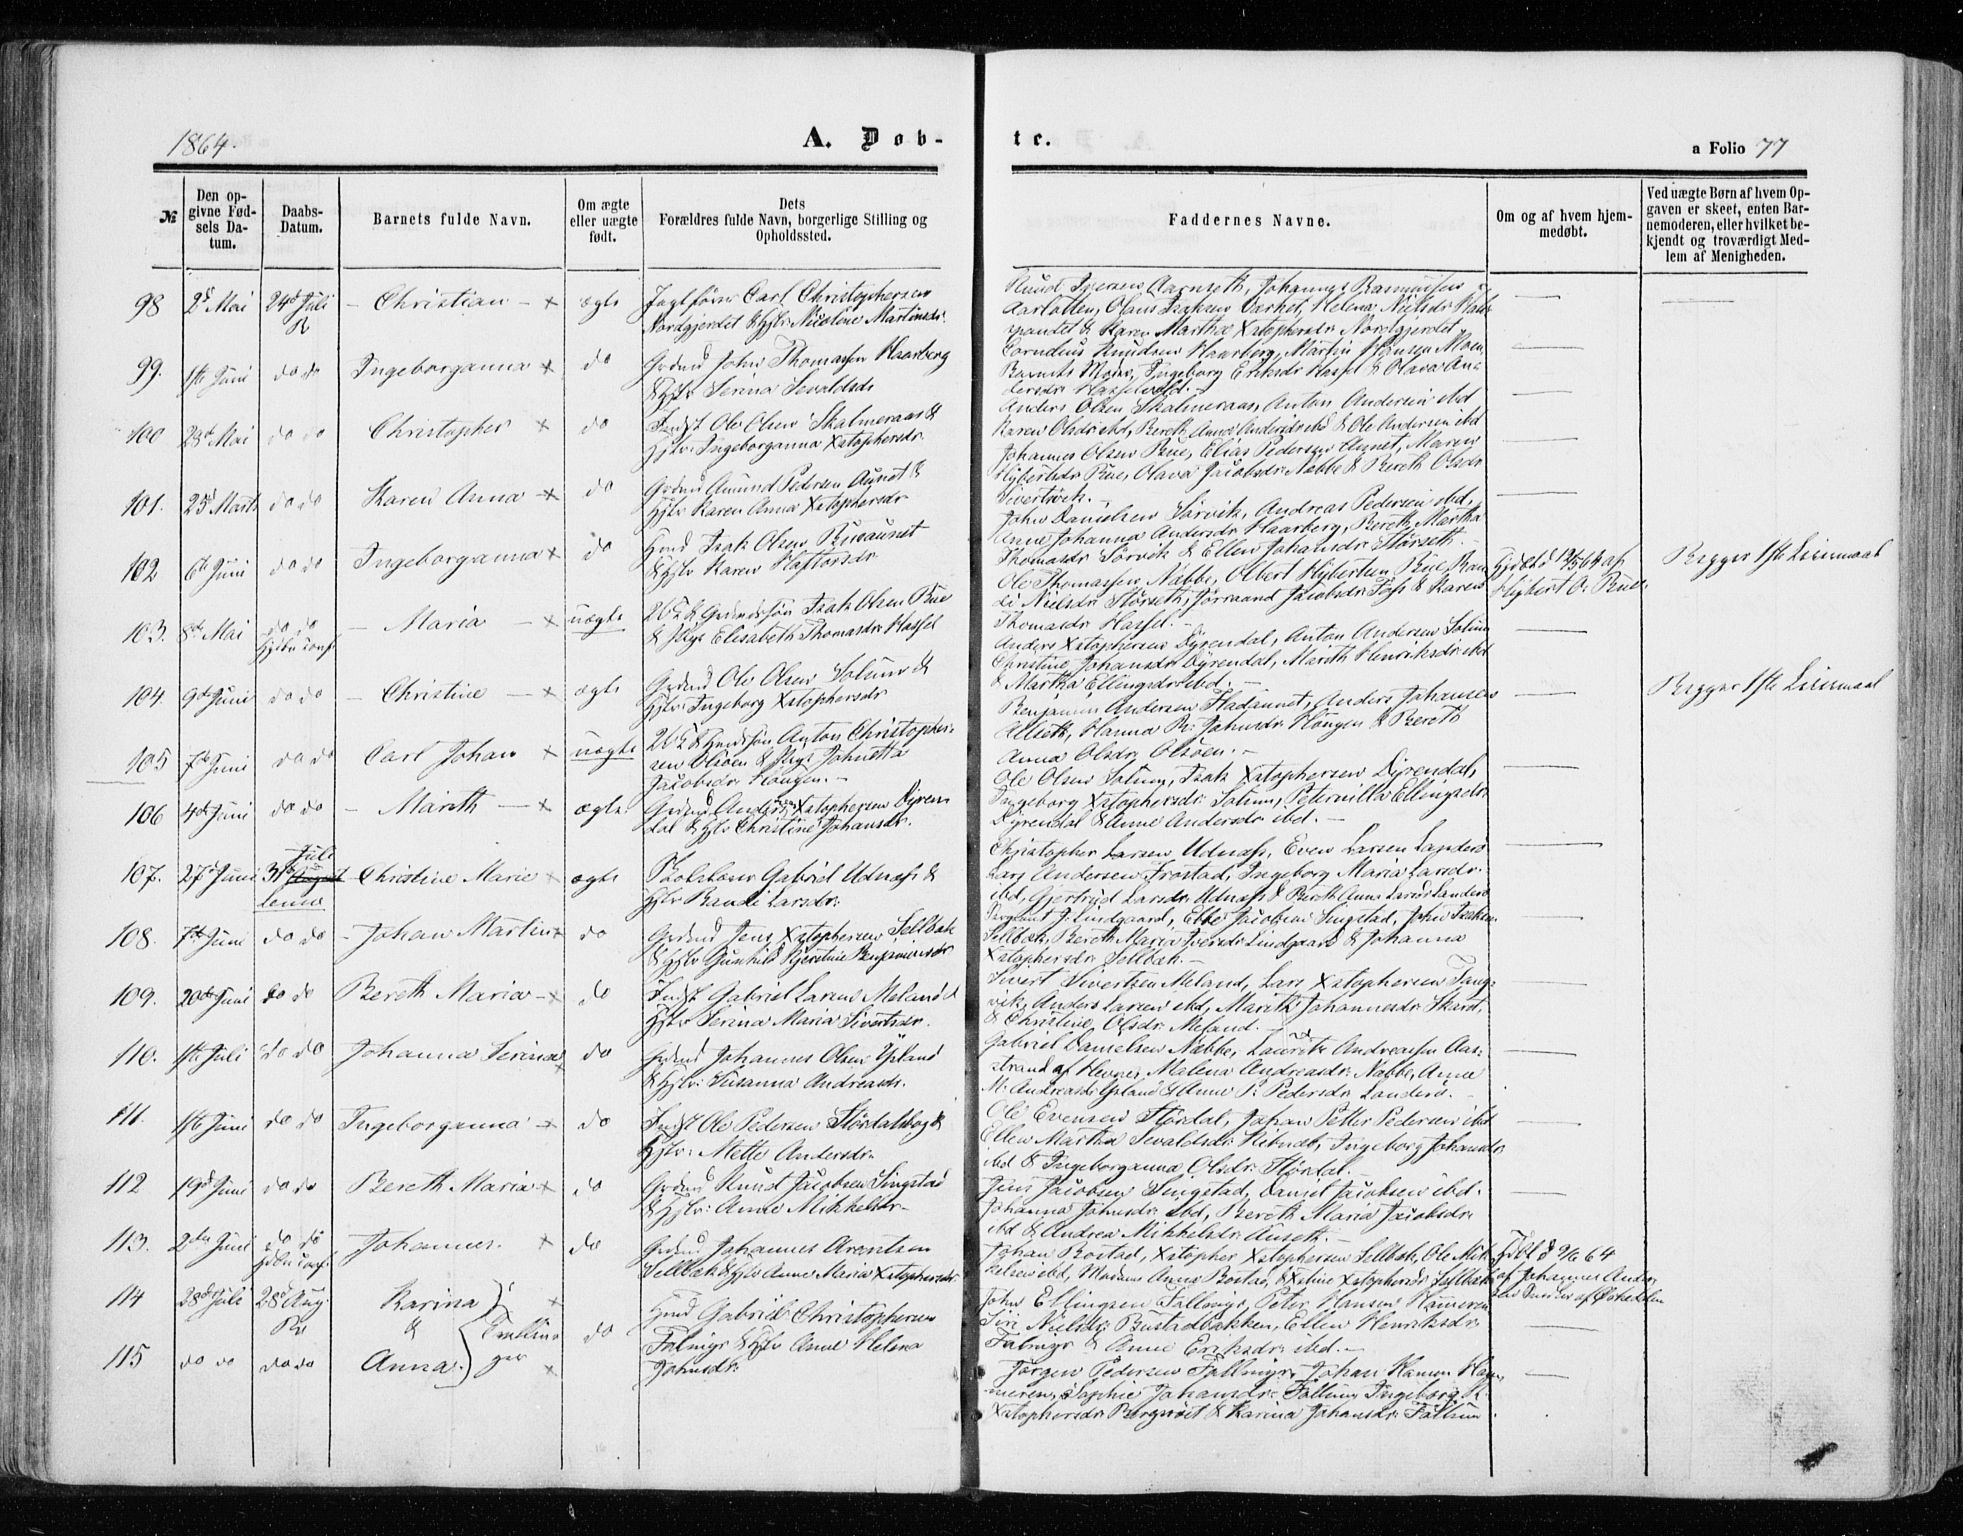 1864.
A. Døb-
te.
a Folio 77
№
Den op-
givne Fød-
sels Da-
tum.
Daabs-
Datum.
Barnets fulde Navn.
Om ægte
eller uægte
født.
Dets
Forældres fulde Navn, borgerlige Stilling og
Opholdssted.
Faddernes Navne.
Om og af hvem hjem-
medøbt.
Ved uægte Børn af hvem Op-
gaven er skeet, enten Bar-
nemoderen, eller hvilket be-
kjendt og troværdigt Med-
lem af Menigheden.
98 2d Mai 24d Juli Christian ægte Carl Christophersen
Nordgjerdet & Hstr: Nicoline Martinsdr.
Knud Iversen Aarnseth, Johannes Rasmussen
Olaus Isaksen Helena Nielsdr
& Karen Martha Xstophersdr Nordgjerdet
99. 1ste Juni do do Ingeborganna do Grdmd John Thomassen Haarberg
& Hstr Serina Sevaldsdr
Cornelius Knudsen Haarberg, Martin Hansen Moen,
Moen, Ingeborg Eriksdr Hassel & Olava An-
dersdr
100 23d Mai do do Christopher do Indst Ole Olsen Skalmeraas &
Hstr: Ingeborganna Xstophersdr
Anders Olsen Skalmeraas, Anton Andersen ibd
Karen Olsdr ibd, Bereth Anna Andersdr ibd & Ole Andersen ibd
101. 25d Marts do do Karen Anna do Grdmd Amund Pedersen Aunet &
Hstr Karen Anna Xstophersdr
Johannes Olsen Rue, Elias Pedersen Aunet, Maren
Hybertsdr Rue, Olava Jacobsdr Næbbe & Bereth Olsdr
102 6te Juni do do Ingeborganna do Hmd Isak Olsen
& Hstr Karen Haftorsdr
John Danielsen Sørvik, Andreas Pedersen ibd,
Anne Johanna Andersdr Haarberg, Bereth Martha
Thomasdr Sørvik & Ellen Johansdr Størseth.
103. 8de Mai do do Maria uægte Isak Olsen Rue
& Pige Elisabeth Thomasdr Hassel
Ole Thomassen Næbbe, Olbert Hybertsen Rue, Ran-
di Nielsdr Størseth, Jacobsdr & Karen
Thomasdr Hassel.
Hjdøbt d 12/5 64 af
Hybert O. Rue.
Begges 1ste Leiermaal
104. 9de Juni do do Christine ægte Grdmd Ole Olsen Solum &
Hstr: Ingeborg Xstophersdr
Anders Xstophersen Dyrendal, Anton Andersen Solum
Christine Johansdr Dyrendal, Mareth Henriksdr ibd
& Martha Ellingsdr ibd.
105 7de Juni do do Carl Johan uægte Anton Christopher-
sen Olsøen & Pige Johnetta
Jacobsdr Haugen.
Benjamin Andersen Fladaunet, Anders Johansen
Hanna P. Johnsdr Haugen & Bereth
Anna Olsdr Olsøen.
Begges 1ste Leiermaal
106 4de Juni do do Mareth ægte Grdmd Anders Xstophersen Dyren-
dal & Hstr Christine Johansdr.
Ole Olsen Solum, Isak Xstophersen Dyrendal,
Ingeborg Xstophersdr Solum, Peternilla Ellingsdr
Dyrendal & Anne Andersdr ibd.
107. 27d Juni 31te Juli Christine Marie ægte Skolelærer Gabriel Udnæss &
Hstr Randi Larsdr.
Christopher Larsen Udnæss, Even Larsen Landerø
Lars Andersen Frostad, Ingeborg Maria Larsdr.
ibd, Gjertrud Larsdr Udnæss & Bereth Anna Larsdr Landerø
108. 7de Juni do do Johan Martin do Grdmd Jens Xstophersen Selbæk
& Hstr Gunhild Kjerstine Benjaminsdr
J. Lindgaard, Ebbe Jacobsen Singstad, John Isaksen
Selbæk, Bereth Maria Iversdr Lindgaard & Johanna
Xstophersdr Selbæk.
109. 20de Juni do do Bereth Maria do Indst Gabriel Larsen Meland &
Hstr Serina Maria Sivertsdr.
Sivert Sivertsen Meland, Lars Xstophersen Tang-
vik, Anders Larsen ibd, Mareth Johannesdr
& Christine Olsdr Meland.
110. 1ste Juli do do Johanna Serina do Grdmd Johannes Olsen Ysland
& Hstr: Susanna Andreasdr.
Gabriel Danielsen Næbbe, Laurits Andreassen Aas-
strand af Hevne, Malena Andreasdr Næbbe, Anne
M. Andreasdr Ysland & Anne P. Pedersdr Landerø.
111. 1ste Juni do do Ingeborganna do Indst Ole Pedersen Størdalshog &
Hstr: Mette Andersdr.
Ole Evensen Størdal, Johan Petter Pedersen ibd
Ellen Martha Sevaldsdr Ingeborg Johansdr
ibd & Ingeborganna Olsdr Størdal.
112 19d Juni do do Bereth Maria do Grdmd Knud Jacobsen Singstad
& Hstr: Anne Mikkelsdr
Jens Jacobsen Singstad, Daniel Jacobsen ibd.
Johanna Johnsdr ibd, Bereth Maria Jacobsdr
ibd & Andrea Mikkelsdr
113. 2den Juni do do Johannes. do Grdmd Johannes Arentsen
Selbæk & Hstr Anne Maria Xstophersdr
Johan Rostad, Xstopher Xstophersen Selbæk, Ole Mik-
kelsen ibd, Madam Anna Rostad, & Xstine Xstophersdr Selbæk
Hjdøbt d 9/6 64
af Johannes
114 28de Juli 28d Aug. Karina
&
115 do do do do Anna. Tvillin-
ger do Hmd Gabriel Christophersen
Falmyr & Hstr Anne Helena
Johnsdr.
John Ellingsen Falmyr, Peter Hansen Hammeren
Siri Nielsdr Bustadbakken, Ellen Henriksdr
Falmyr & Anne Eriksdr ibd.
Jørgen Pedersen Falmyr, Johan Hansen Ham-
meren, Sophie Johansdr Ingeborg K.
Xstophersdr & Karina Johansdr